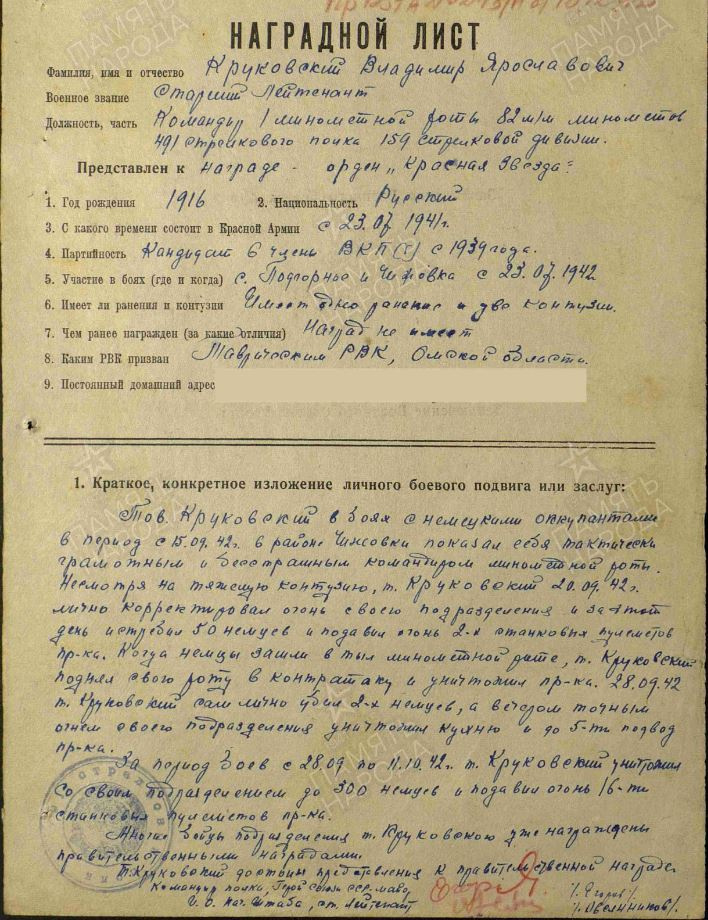 НАГРАДНОЙ ЛИСТ
Фамилия, имя и отчество Круковский Владимир Ярославович
Военное звание Старший Лейтенант
Должность, часть Командир 1 минометной роты 82 м/м минометов
491 стрелкового полка 159 стрелковой дивизии.
Представлен к награде - орден „Красная Звезда"
1. Год рождения 1916 2. Национальность Русский
3. С какого времени состоит в Красной Армии с 23.07 1941г.
4. Партийность Кандидат в члены ВКП(б) с 1939 года.
5. Участие в боях (где и когда) с. Подгорное и Чижовка с 23.07.1942
6. Имеет ли ранения и контузии Имеет одно ранение и две контузии.
7. Чем ранее награжден (за какие отличия) Наград не имеет
8. Каким РВК призван Таврическим РВК, Омской области.
9. Постоянный домашний адрес
1. Краткое, конкретное изложение личного боевого подвига или заслуг:
Тов. Круковский в боях с немецкими оккупантами
в период с 15.09.42г. в районе Чижовки показал себя тактически
грамотным и бесстрашным командиром минометной роты.
Несмотря на тяжелую контузию, т. Круковский 20.09.42г.
лично корректировал огонь своего подразделения и за этот
день истребил 50 немцев и подавил огонь 2-х станковых пулеметов
пр-ка. Когда немцы зашли в тыл минометной роте, т. Круковский
поднял свою роту в контратаку и уничтожил пр-ка. 28.09.42
т. Круковский сам лично убил 2-х немцев, а вечером точным
огнем своего подразделения уничтожил кухню и до 5-ти подвод
пр-ка.
За период боев с 28.09 по 11.10.42г. т. Круковский уничтожил
со своим подразделением до 300 немцев и подавил огонь 16-ти
станковых пулеметов пр-ка.
Многие бойцы подразделения т. Круковского уже награждены
правительственными наградами.
Т. Круковский достоин представления к правительственной награде
Командир полка, Герой Союза ССР, майор /Егоров/
И.О. нач. штаба, ст. лейтенант /Овсянников/
ПАМЯТЬ НАРОДА